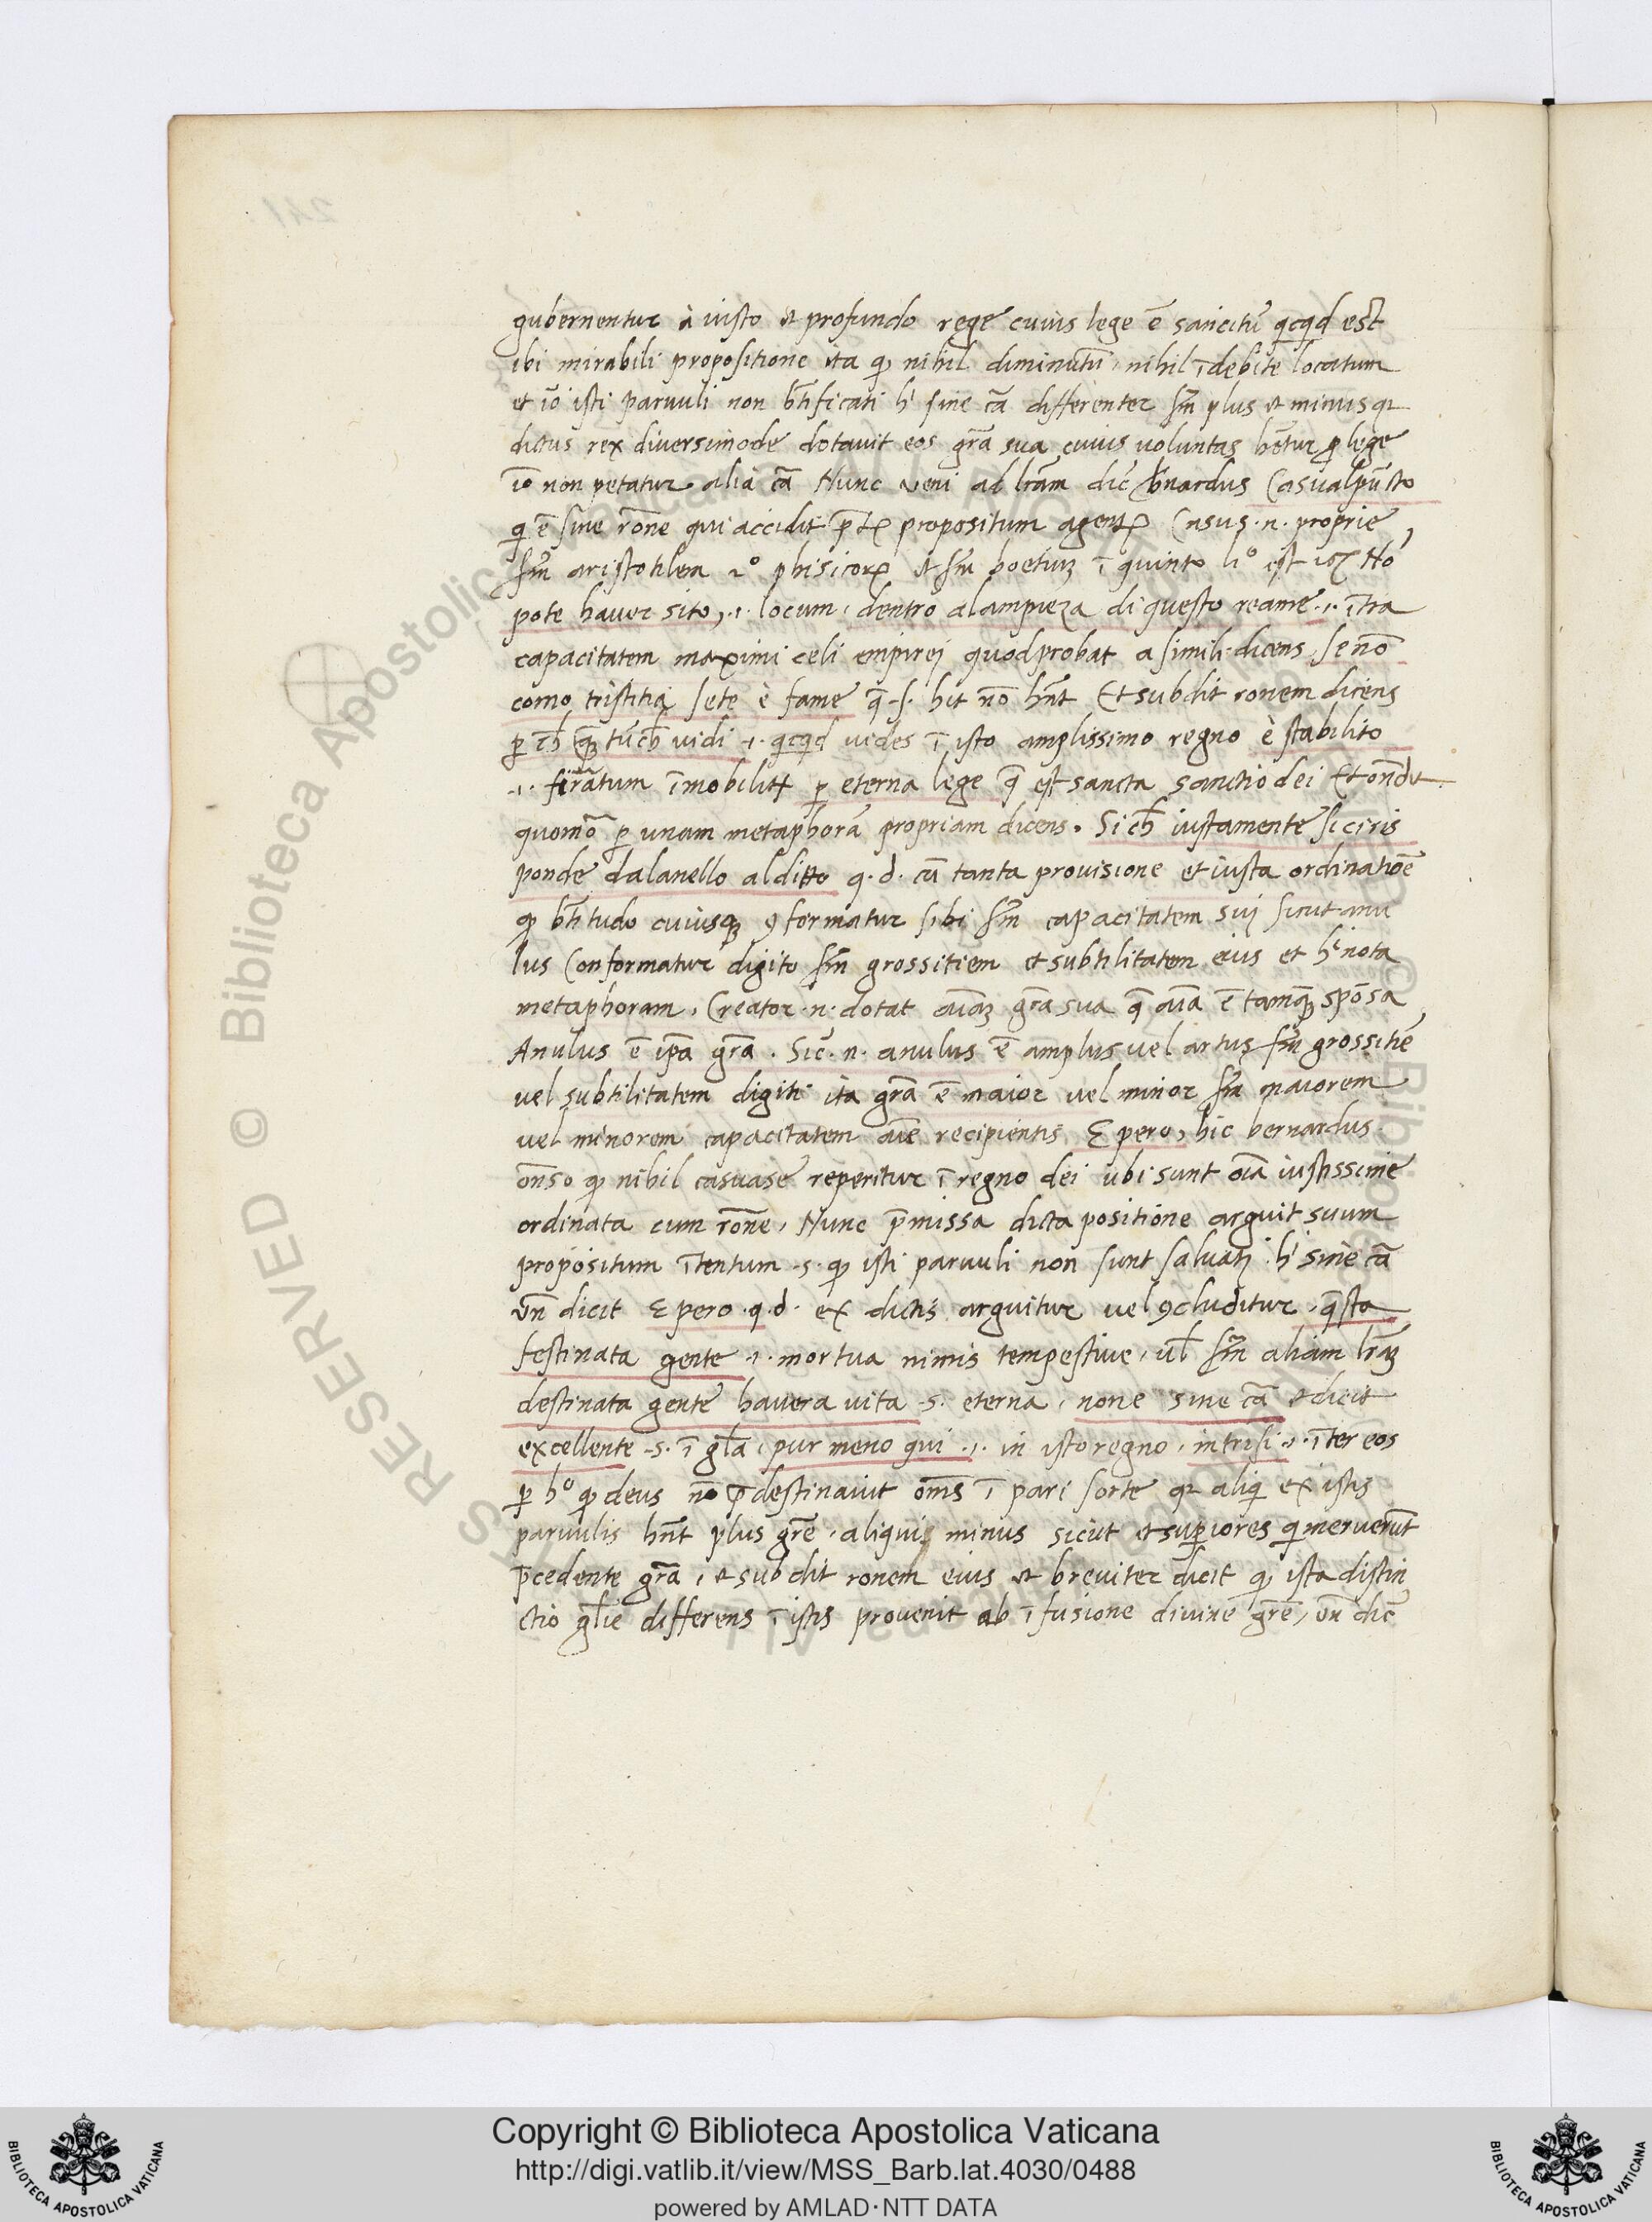 gubernentur à iusto et profundo rege cuius lege ē sancitū qcqd est
ibi mirabili propositione ita q̨ nihil diminutū, nihil īdebite locatum
et iō isti paruuli non bt̄ificati h̄ sine cā differenter sm̄ plus et minus qz
dictus rex diuersimode dotauit eos grā sua cuius uoluntas hētur ꝓ lege
iō non petatur alia cā Nunc veni ad lrām dic̄ b̄nardus Casual pūcto
qͥ ē sine rōne qui accidit p̄ter propositum agentꝫ Casus .n. proprie
sm̄ aristotilem 2º phisicorꝫ et sm̄ boetium ī quinto liº est
pote hauer sito, .i. locum, dentro alampieza di questo reame .i. ītra
capacitatem maximi celi empirei quod probat a simili dicens, se nō
como tristitia sete è fame q̄ .s. hic nō hn̄t Et subdit ronem dicens
ꝑ ch̄ tūch̄ vidi .i. qcqd uides ī isto amplissimo regno è stabilito
.i. firmatum īmobilitꝫ ꝑ eterna lege q̄ est sancta sanctio dei Et on̄dit
quomō ꝑ unam metaphorā propriam dicens. Si ch̄ iustamente si ciris
ponde dalanello al ditto q.d. cū tanta prouisione et iusta ordinatiōe
q̨ bt̄itudo cuiusqz ꝯformatur sibi sm̄ capacitatem sui sicut anu
lus Conformatur digito sm̄ grossitiem et subtilitatem eius et hͥc nota
metaphoram, Creator .n. dotat aīaꝫ grā sua q̄ aīa ē tamqꝫ spōsa
Anulus ē ip̄a grā. Sic̄ .n. anulus ē amplus uel artus sm̄ grossitiē
vel subtilitatem digiti ita grā ē maior uel minor sm̄ maiorem
vel minorem capacitatem aīe recipientis, E pero, hic bernardus
on̄so q̨ nihil casuase reperitur ī regno dei ubi sunt oīa iustissime
ordinata cum rōne, Nunc p̄missa dicta positione arguit suum
propositum ītentum .s. q̨ isti paruuli non sunt saluati h̄ sine cā
ūn dicit E pero .q.d. ex dictis arguitur uel ꝯcluditur, q̄sta
festinata gente .i. mortua nimis tempestiue, ul̄ sm̄ aliam lrāꝫ
destinata gente hauera uita .s. eterna, none sine cā et dicit
excellente .s. ī gl̄a, pur meno qui .i. in isto regno, intrisi .i. īter eos
ꝑ hº q̨ deus nō p̄destinauit om̄s ī pari sorte qz aliqͥ ex istis
paruulis hn̄t plus grē, aliquis minus sicut et superiores qͥ meruerūt
p̄cedente grā, et subdit ronem eius et breuiter dicit q̨ ista distin
ctio gl̄ie differens ī istis prouenit ab ī fusione diuine grē, ūn dic̄
Copyright © Biblioteca Apostolica Vaticana
http://digi.vatlib.it/view/MSS_Barb.lat.4030/0488
powered by AMLAD·NTT DATA